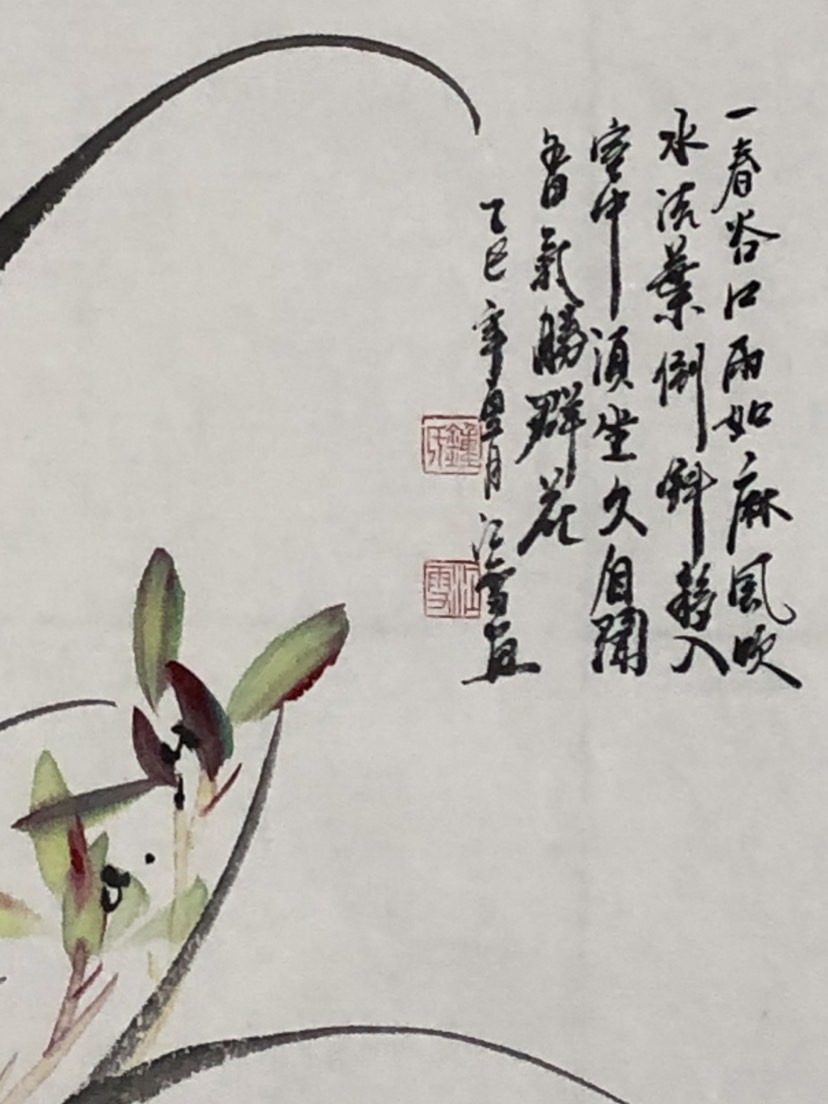 一春谷口雨如麻風吹
水流葉倒斜移入
室中須坐久自聞
香氣勝群花
乙巳年皇月江雪寫
鍾氏
江雪